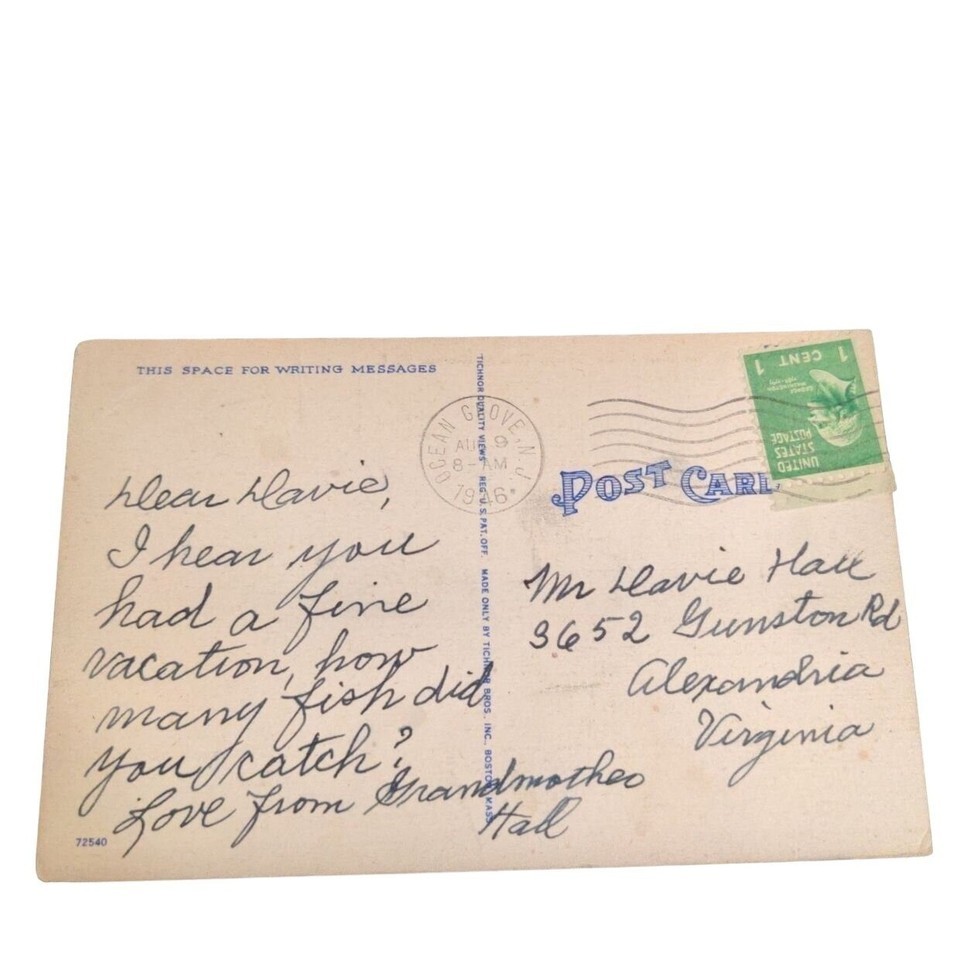 THIS SPACE FOR WRITING MESSAGES
Dear Davie,
I hear you
had a fine
vacation, how
many fish did
you catch?
Love from Grandmother
Hall
72540
TICHNOR QUALITY VIEWS REG. U.S. PAT. OFF. MADE ONLY BY TICHNOR BROS. INC., BOSTON, MASS.
OCEAN GROVE, N.J.
AUG 9
8-AM
1946
POST CARD
1 CENT 1
GEORGE WASHINGTON
UNITED
STATES
POSTAGE
Mr Davie Hall
3652 Gunston Rd
Alexandria
Virginia